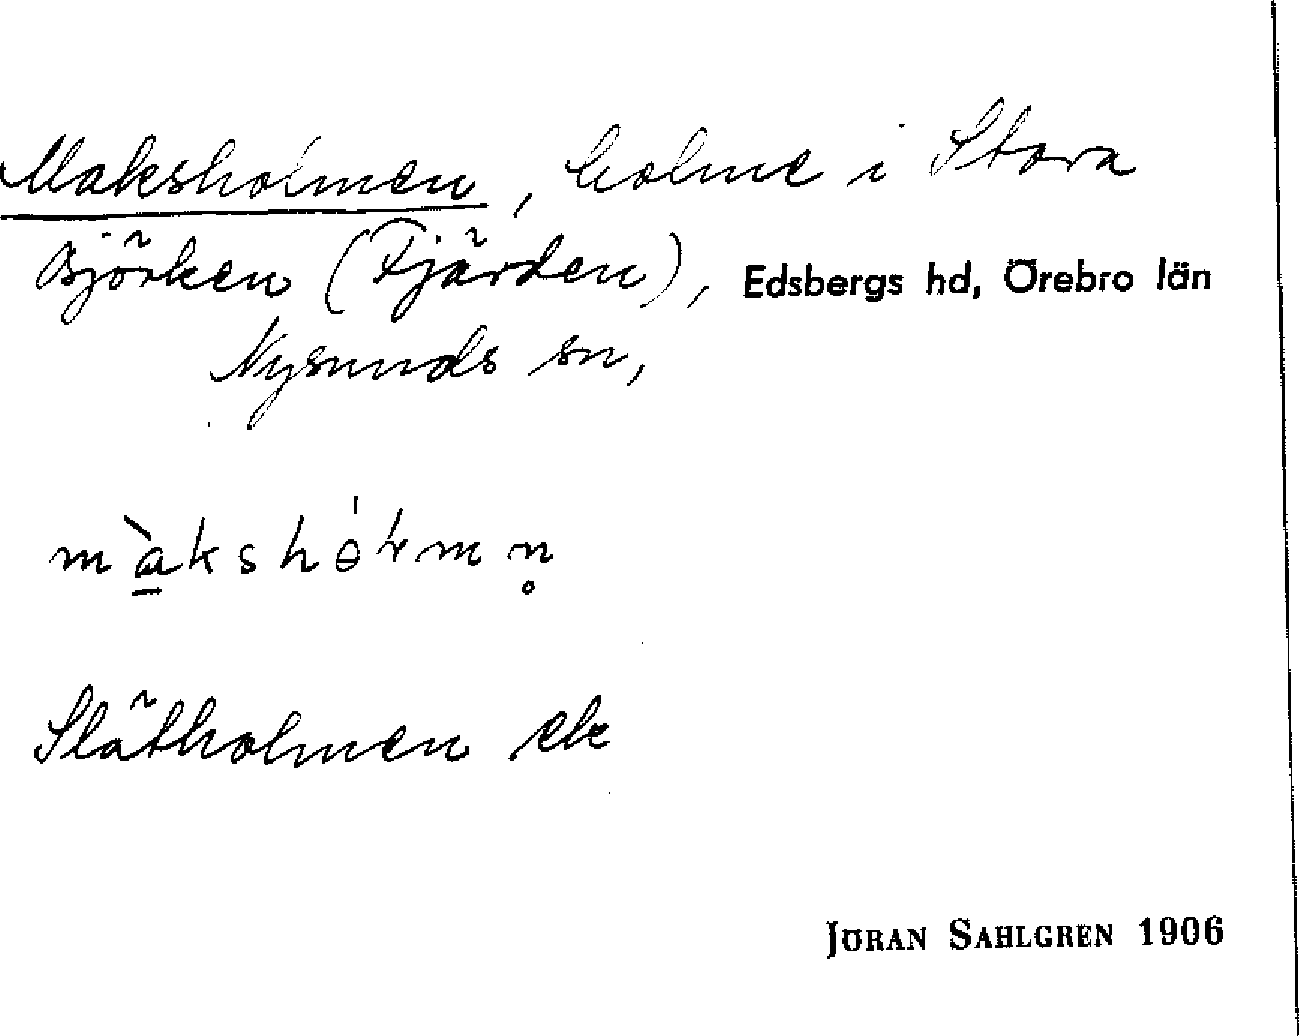 Maksholmen, holme i Stora
Björken (Fjärden), Edsbergs hd, Örebro län
Nysunds sn,
m<u>à</u>kshólmn̥
Slätholmen ek
JÖRAN SAHLGREN 1906